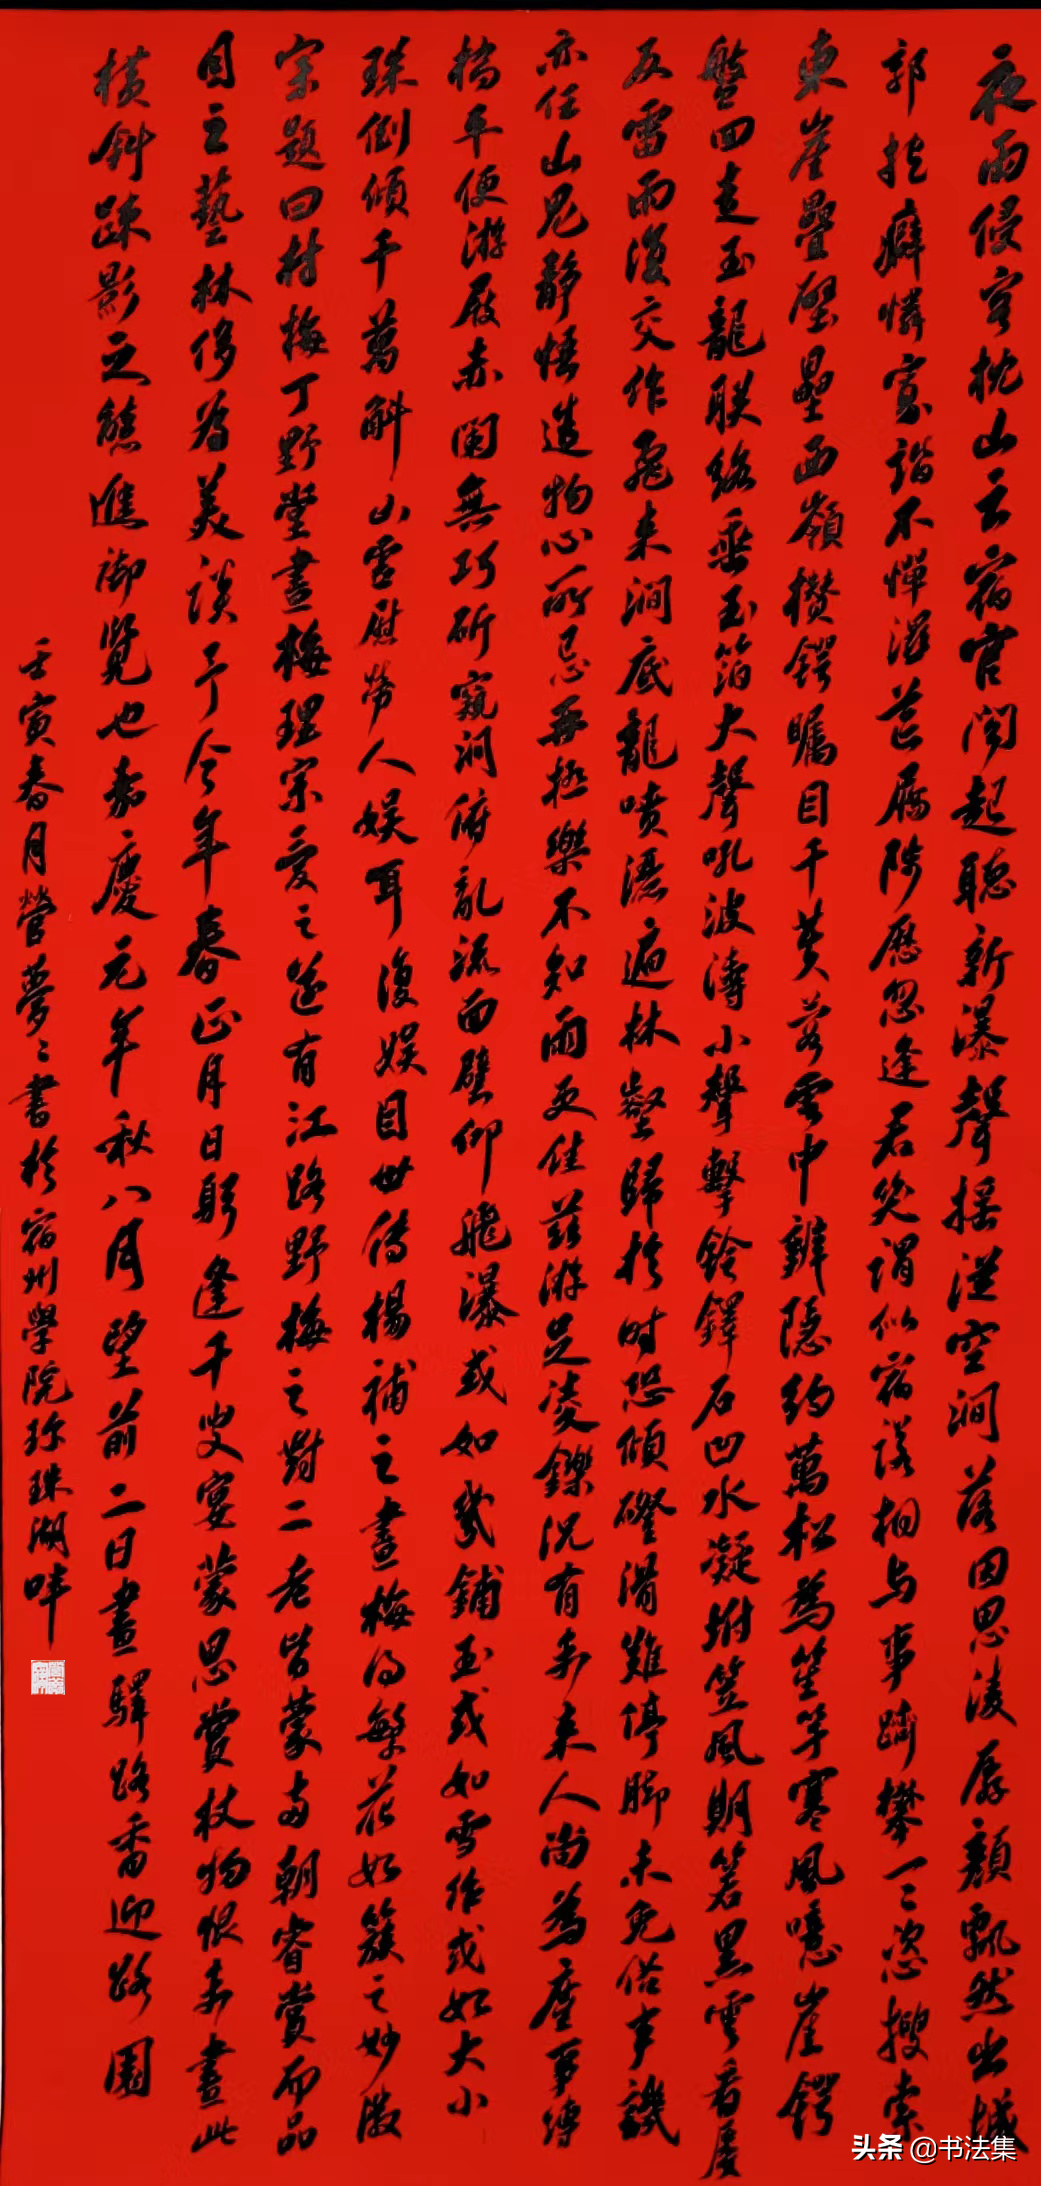 夜雨侵客枕山云宿官閣起聽新瀑聲搖漾空澗落因思凌孱顏飄然出城
郭抗癖憐寡諧不憚滋芒屩陟歷忽逢君笑謂似宿諾相与事躋攀一一恣搜索
東崖疊壁壘西嶺攢鍔矚目千黃落雲中辨隱約萬松為笙竽寒風噫崖鍔
盤回走玉龍聯絡垂玉箔大聲吼波濤小聲擊鈴鐸石凹水凝坿笠風期箬黑雲看屢
反雷雨復交作飛来澗底龍噴瀑遍林壑歸於時恐傾磴滑難停脚未免俗事譏
亦任山鬼静悟造物心所忌再极樂不知雨更佳兹游足凌鑠况有未来人尚為塵事縛
橋平便游屐赤闌無巧斫窺澗俯亂流面壁仰飛瀑或如幾鋪玉或如雪作或如大小
珠倒傾千萬斛山雲慰勞人娱耳復娱目世傳楊補之畫梅得繁花如簇之妙徽
宗題曰村梅丁野堂畫梅理宗愛之遂有江路野梅之對二老皆蒙两朝睿賞而品
目之藝林侈為美談予今年春正月日躬逢千叟宴蒙恩賞杖物恨未畫此
横斜疎影之態進御覽也嘉慶元年秋八月望前二日畫驛路香迎路園
壬寅春月營夢〻書於宿州學院珍珠湖畔
头条 @书法集